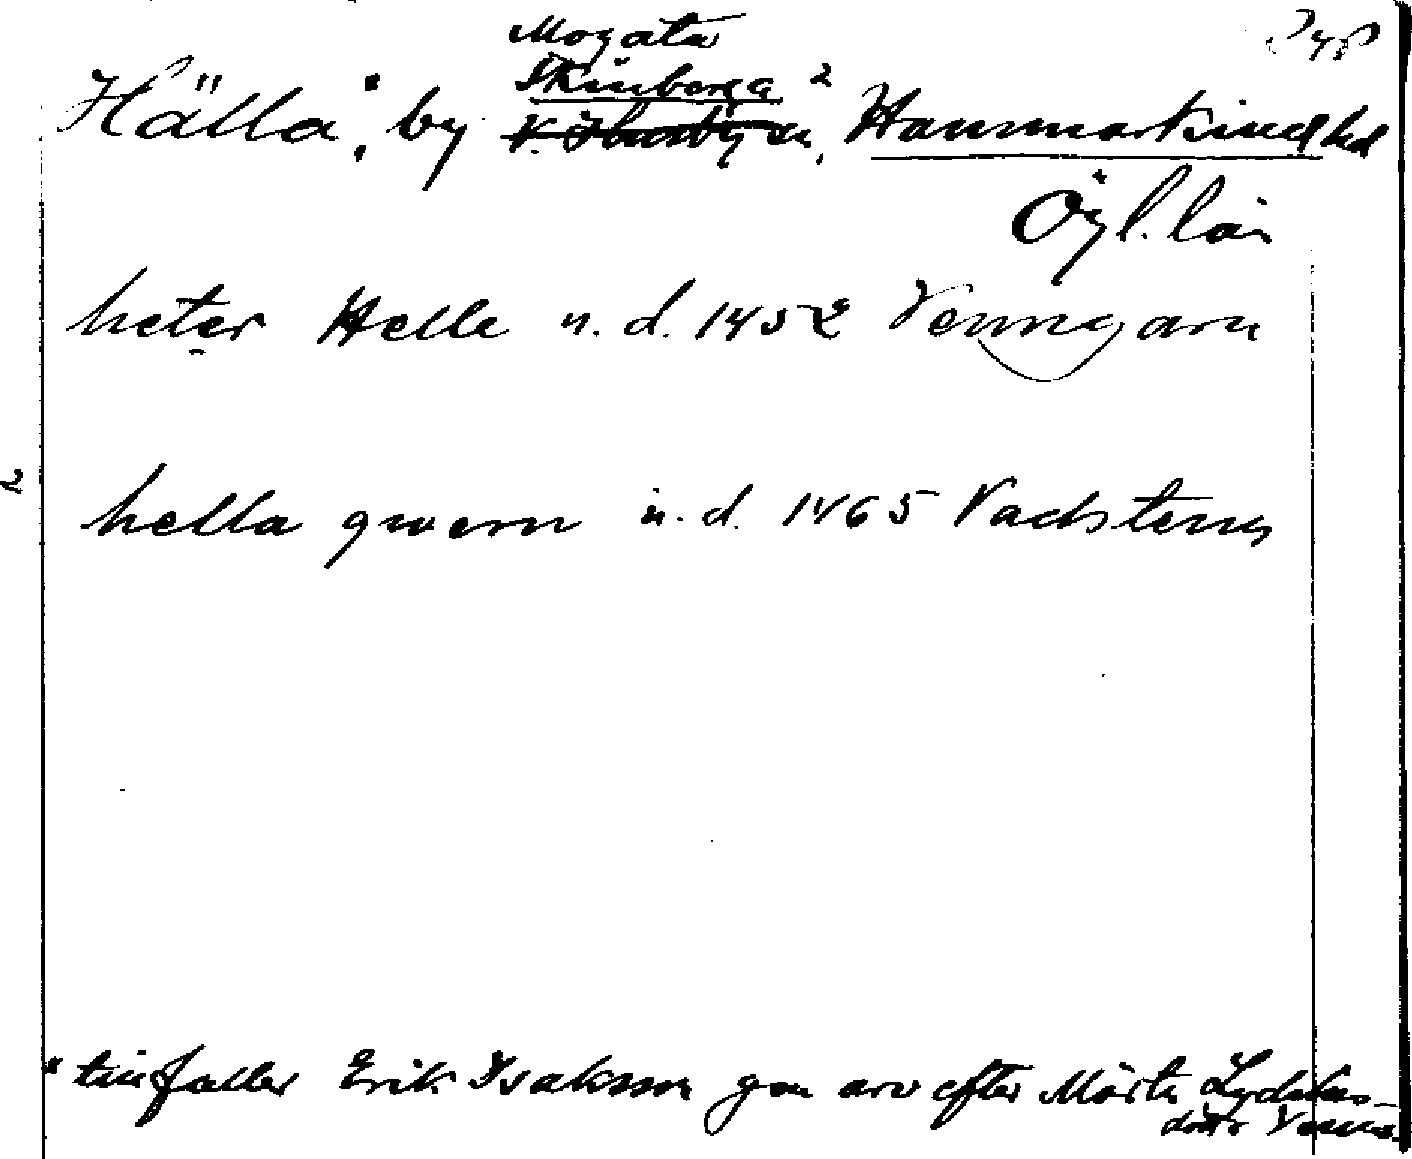 Mogata
Skinberga 2
Hälla, by V. Husby sn, Hammarkind hd
Ögl. län
heter Helle u. d. 1452 Venngarn
2
hella qwern u. d. 1465 Vadstena
tillfaller Erik Isaksson gm arv efter Märta Lydeka-
dotter